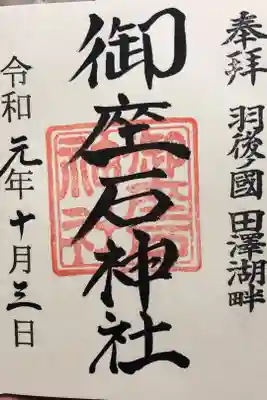 奉拝 羽後ノ國 田澤湖畔
御座石神社
令和元年十月三日